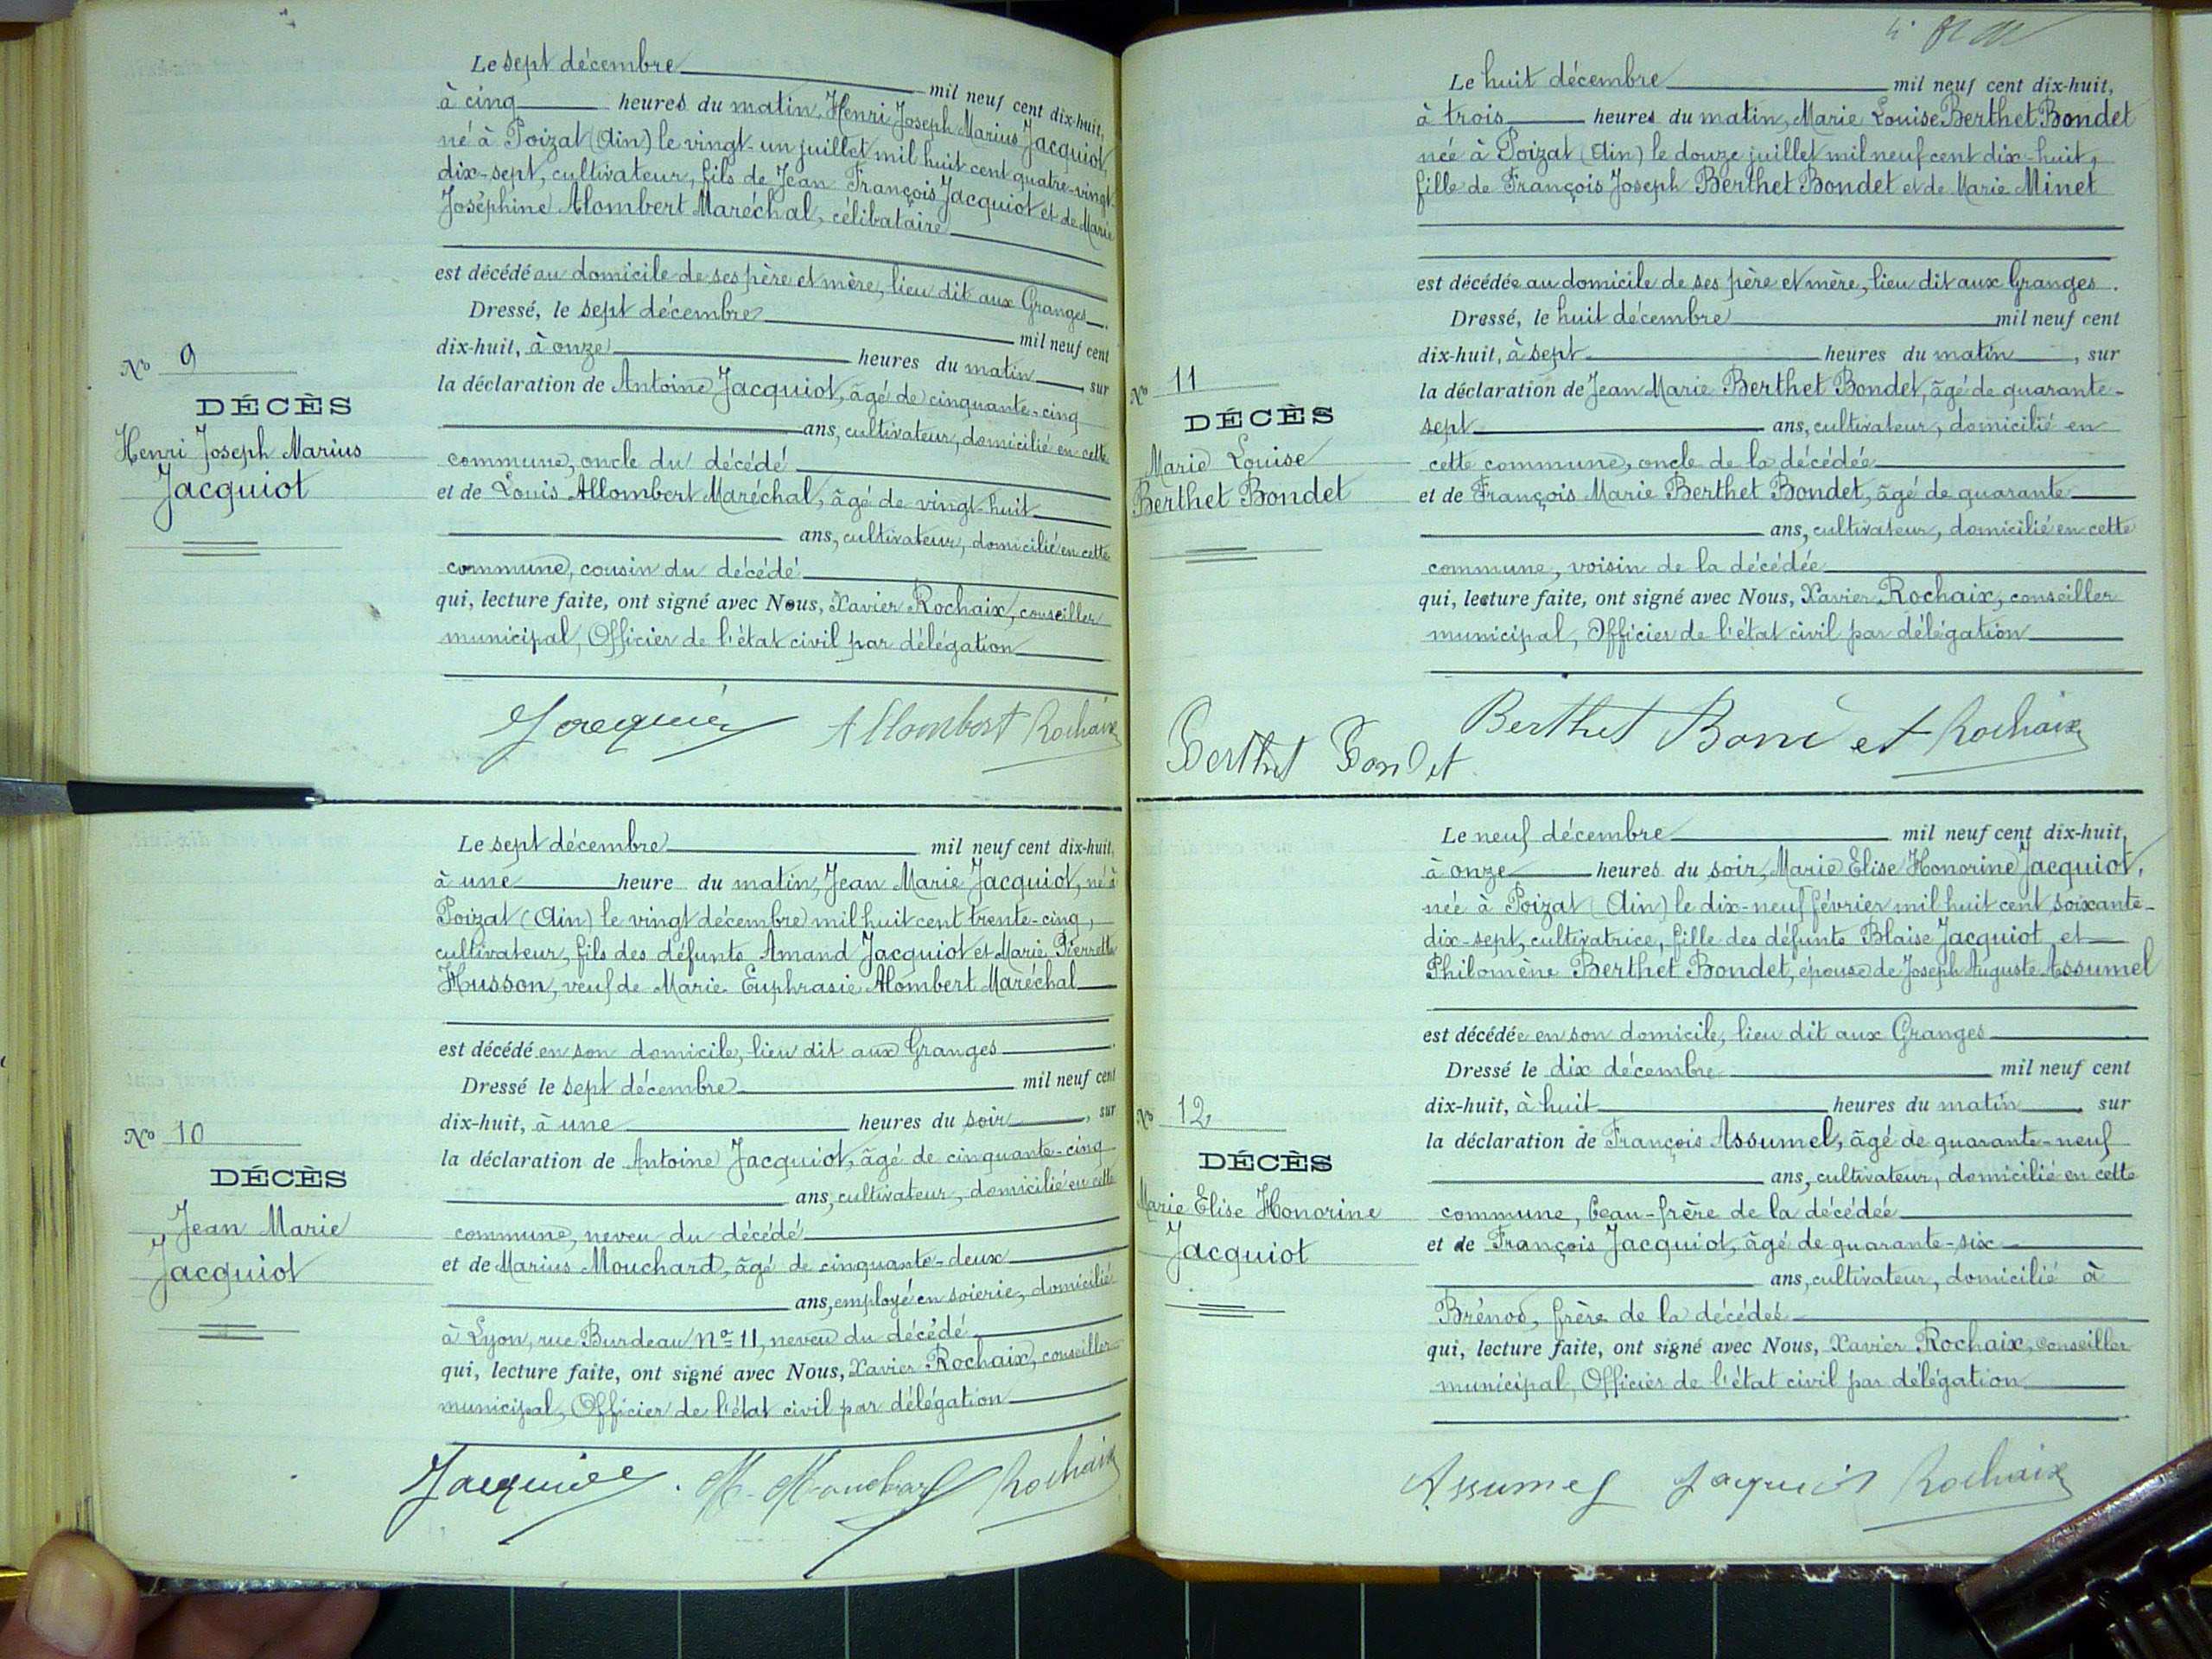 Le sept décembre mil neuf cent dix-huit,
à cinq heures du matin, Henri Joseph Marius Jacquiot,
né à Poizat (Ain) le vingt-un juillet mil huit cent quatre-vingt-
dix-sept, cultivateur, fils de Jean François Jacquiot et de Marie
Joséphine Alombert Maréchal, célibataire
est décédé au domicile de ses père et mère, lieu dit aux Granges.
Dressé, le sept décembre mil neuf cent
dix-huit, à onze heures du matin, sur
la déclaration de Antoine Jacquiot, âgé de cinquante-cinq
ans, cultivateur, domicilié en cette
commune, oncle du décédé
et de Louis Allombert Maréchal, âgé de vingt-huit
ans, cultivateur, domicilié en cette
commune, cousin du décédé
qui, lecture faite, ont signé avec Nous, Xavier Rochaix, conseiller
municipal, Officier de l'état civil par délégation
No 9
DÉCÈS
Henri Joseph Marius
Jacquiot
Allombert Rochaix
Le sept décembre mil neuf cent dix-huit,
à une heure du matin, Jean Marie Jacquiot, né à
Poizat (Ain) le vingt décembre mil huit cent trente-cinq,
cultivateur, fils des défunts Amand Jacquiot et Marie Pierrette
Husson, veuf de Marie Euphrasie Alombert Maréchal
est décédé en son domicile, lieu dit aux Granges
Dressé le sept décembre mil neuf cent
dix-huit, à une heures du soir, sur
la déclaration de Antoine Jacquiot, âgé de cinquante-cinq
ans, cultivateur, domicilié en cette
commune, neveu du décédé
et de Marius Mouchard, âgé de cinquante-deux
ans, employé en soierie, domicilié
à Lyon, rue Burdeau No 11, neveu du décédé
qui, lecture faite, ont signé avec Nous, Xavier Rochaix, conseiller
municipal, Officier de l'état civil par délégation
No 10
DÉCÈS
Jean Marie
Jacquiot
M. Mouchard Rochaix
Le huit décembre mil neuf cent dix-huit,
à trois heures du matin, Marie Louise Berthet Bondet
née à Poizat (Ain) le douze juillet mil neuf cent dix-huit,
fille de François Joseph Berthet Bondet et de Marie Minet
est décédée au domicile de ses père et mère, lieu dit aux Granges.
Dressé, le huit décembre mil neuf cent
dix-huit, à sept heures du matin, sur
la déclaration de Jean Marie Berthet Bondet, âgé de quarante-
sept ans, cultivateur, domicilié en
cette commune, oncle de la décédée
et de François Marie Berthet Bondet, âgé de quarante
ans, cultivateur, domicilié en cette
commune, voisin de la décédée
qui, lecture faite, ont signé avec Nous, Xavier Rochaix, conseiller
municipal, Officier de l'état civil par délégation
No 11
DÉCÈS
Marie Louise
Berthet Bondet
Berthet Bondet
Berthet Rochaix
Le neuf décembre mil neuf cent dix-huit,
à onze heures du soir, Marie Elise Honorine Jacquiot,
née à Poizat (Ain) le dix-neuf février mil huit cent soixante-
dix-sept, cultivatrice, fille des défunts Blaise Jacquiot et
Philomène Berthet Bondet, épouse de Joseph Auguste Assumel
est décédée en son domicile, lieu dit aux Granges
Dressé le dix décembre mil neuf cent
dix-huit, à huit heures du matin, sur
la déclaration de François Assumel, âgé de quarante-neuf
ans, cultivateur, domicilié en cette
commune, beau-frère de la décédée
et de François Jacquiot, âgé de quarante-six
ans, cultivateur, domicilié à
Brénod, frère de la décédée
qui, lecture faite, ont signé avec Nous, Xavier Rochaix, conseiller
municipal, Officier de l'état civil par délégation
No 12
DÉCÈS
Marie Elise Honorine
Jacquiot
Assumel Jacquiot Rochaix